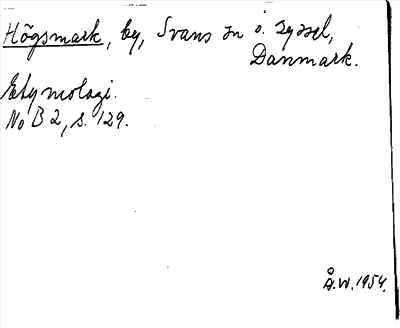 Högsmark, by, Svans sn o. syssel,
Danmark.
Etymologi.
No B 2, s. 129.
Å.W. 1954.